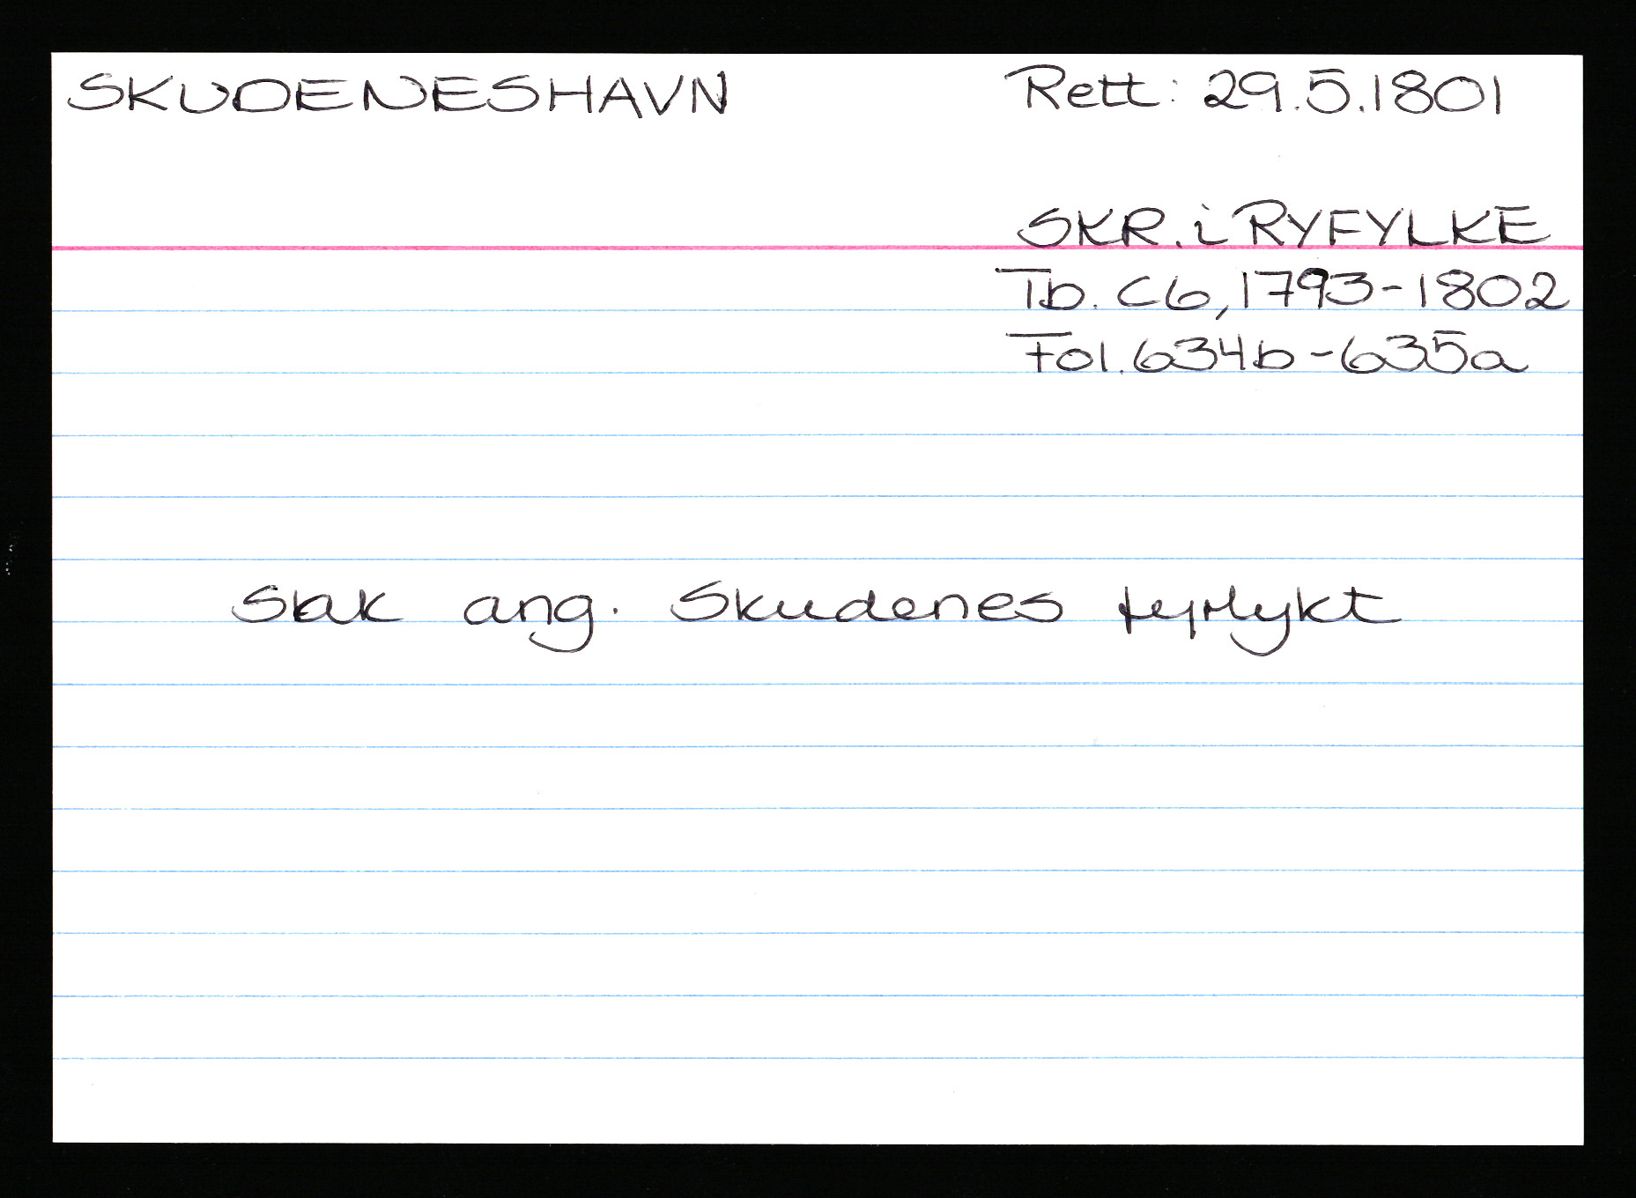 SKUDENESHAVN
Rett: 29.5.1801
SKR. i RYFYLKE
Tb. C6, 1793-1802
Fol. 634b-635a
Sak ang. Skudenes fyrlykt